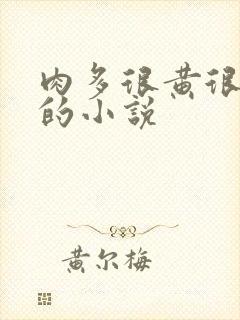 肉多很黄很
的小说
黄尔梅